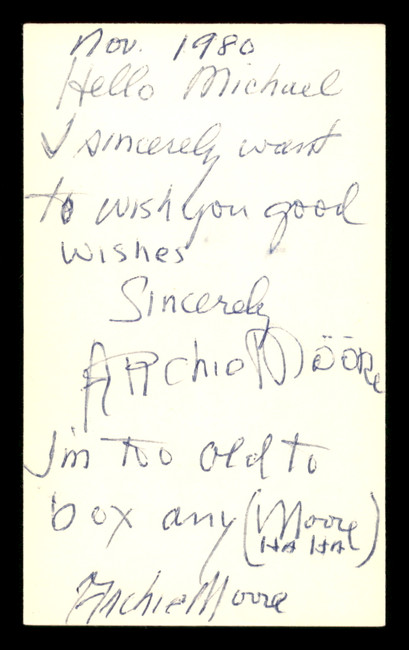 Nov. 1980
Hello Michael
I sincerely want
to wish you good
wishes
Sincerely
Archie Mööre
I'm too old to
box any (Moore
HA HA)
Archie Moore